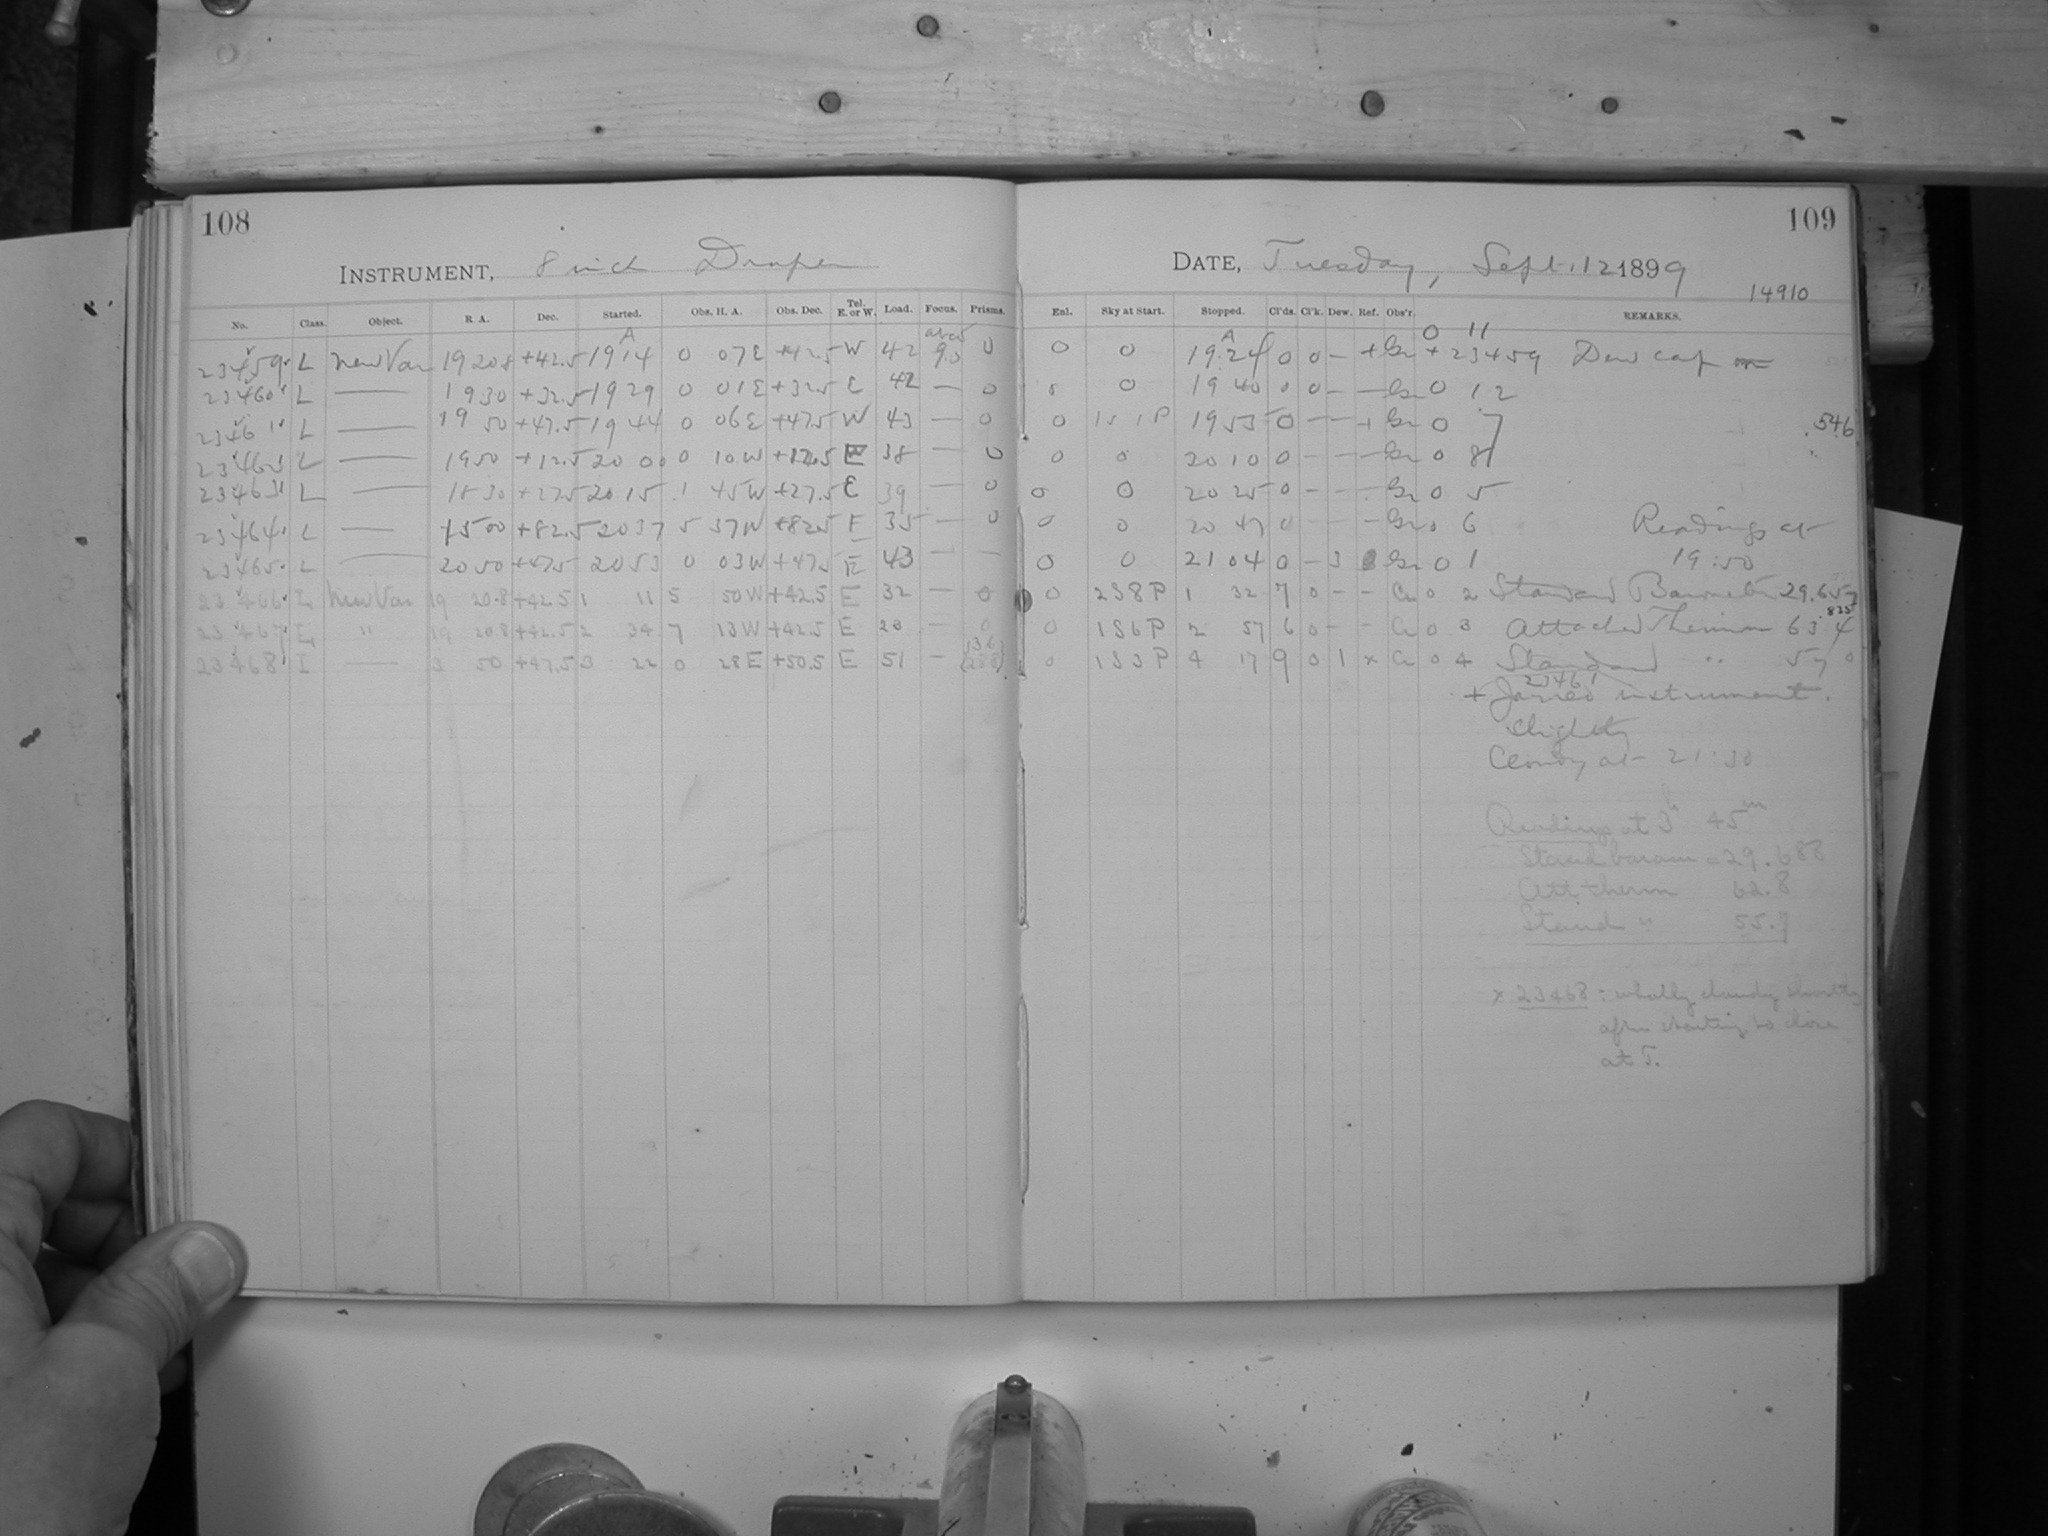 108
109
INSTRUMENT, 8 inch Draper
DATE, Tuesday, Sept. 12 1899
14910
No. Class. Object. R. A. Dec. Started. Obs. H. A. Obs. Dec. Tel. E. or W. Load. Focus. Prisms.
Enl. Sky at Start. Stopped. Cl'ds. Cl'k. Dew. Ref. Obs'r. REMARKS.
23459 L New Var 19 20.8 +42.5 19 14 0 07 E +42.5 W 42 9.0 0 0 0 19 24 0 0 - + Gr + 23459 Dew cap
0 11
23460 L — 19 30 +32.5 19 29 0 01 E +32.5 E 42 — 0 0 0 19 40 0 0 - - Gr 0 12
23461 L — 19 50 +47.5 19 44 0 06 E +47.5 W 43 — 0 0 151 P 19 55 0 - - + Gr 0 7 .546
L — 19 50 +12.5 20 00 0 10 W +12.5 E 38 — 0 0 0 20 10 0 - - - Gr 0 8
23463 L — 18 30 +27.5 20 15 1 45 W +27.5 E 39 — 0 0 0 20 25 0 - - - Gr 0 5
23464 L — 15 00 +82.5 20 37 5 37 W +82.5 E 35 — 0 0 0 20 47 0 - - - Gr 0 6 Readings at
23465 L — 20 50 +47.5 20 53 0 03 W +47.5 E 43 — — 0 0 21 04 0 - 3 Gr 0 1 19:50
23466 L New Var 19 20.8 +42.5 1 11 5 50 W +42.5 E 32 — 0 0 238 P 1 32 7 0 - - 0 2 Standard Barometer 29.657
.835
23467 L " 19 20.8 +42.5 2 34 7 13 W +42.5 E 23 — 0 0 186 P 2 57 6 0 - - 0 3 Attached Therm 63.4
23468 I — 3 50 +47.5 3 22 0 28 E +50.5 E 51 — 0 183 P 4 17 9 0 1 x 0 4 Standard " 57 0
23461
+ Jarred instrument
slightly
Cloudy at 21:30
Readings at 3h 45m
Stand barom = 29.688
Att therm 62.8
Stand " 55.7
x 23468 : wholly cloudy shortly
after starting to close
at 5.